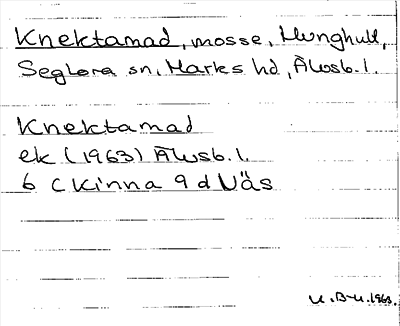 Knektamad, mosse, Munghult,
Seglora sn, Marks hd, Älvsb. l.
Knektamad
ek (1963) Älvsb. l.
6 C Kinna 9 d Näs
U.B-u. 1963.